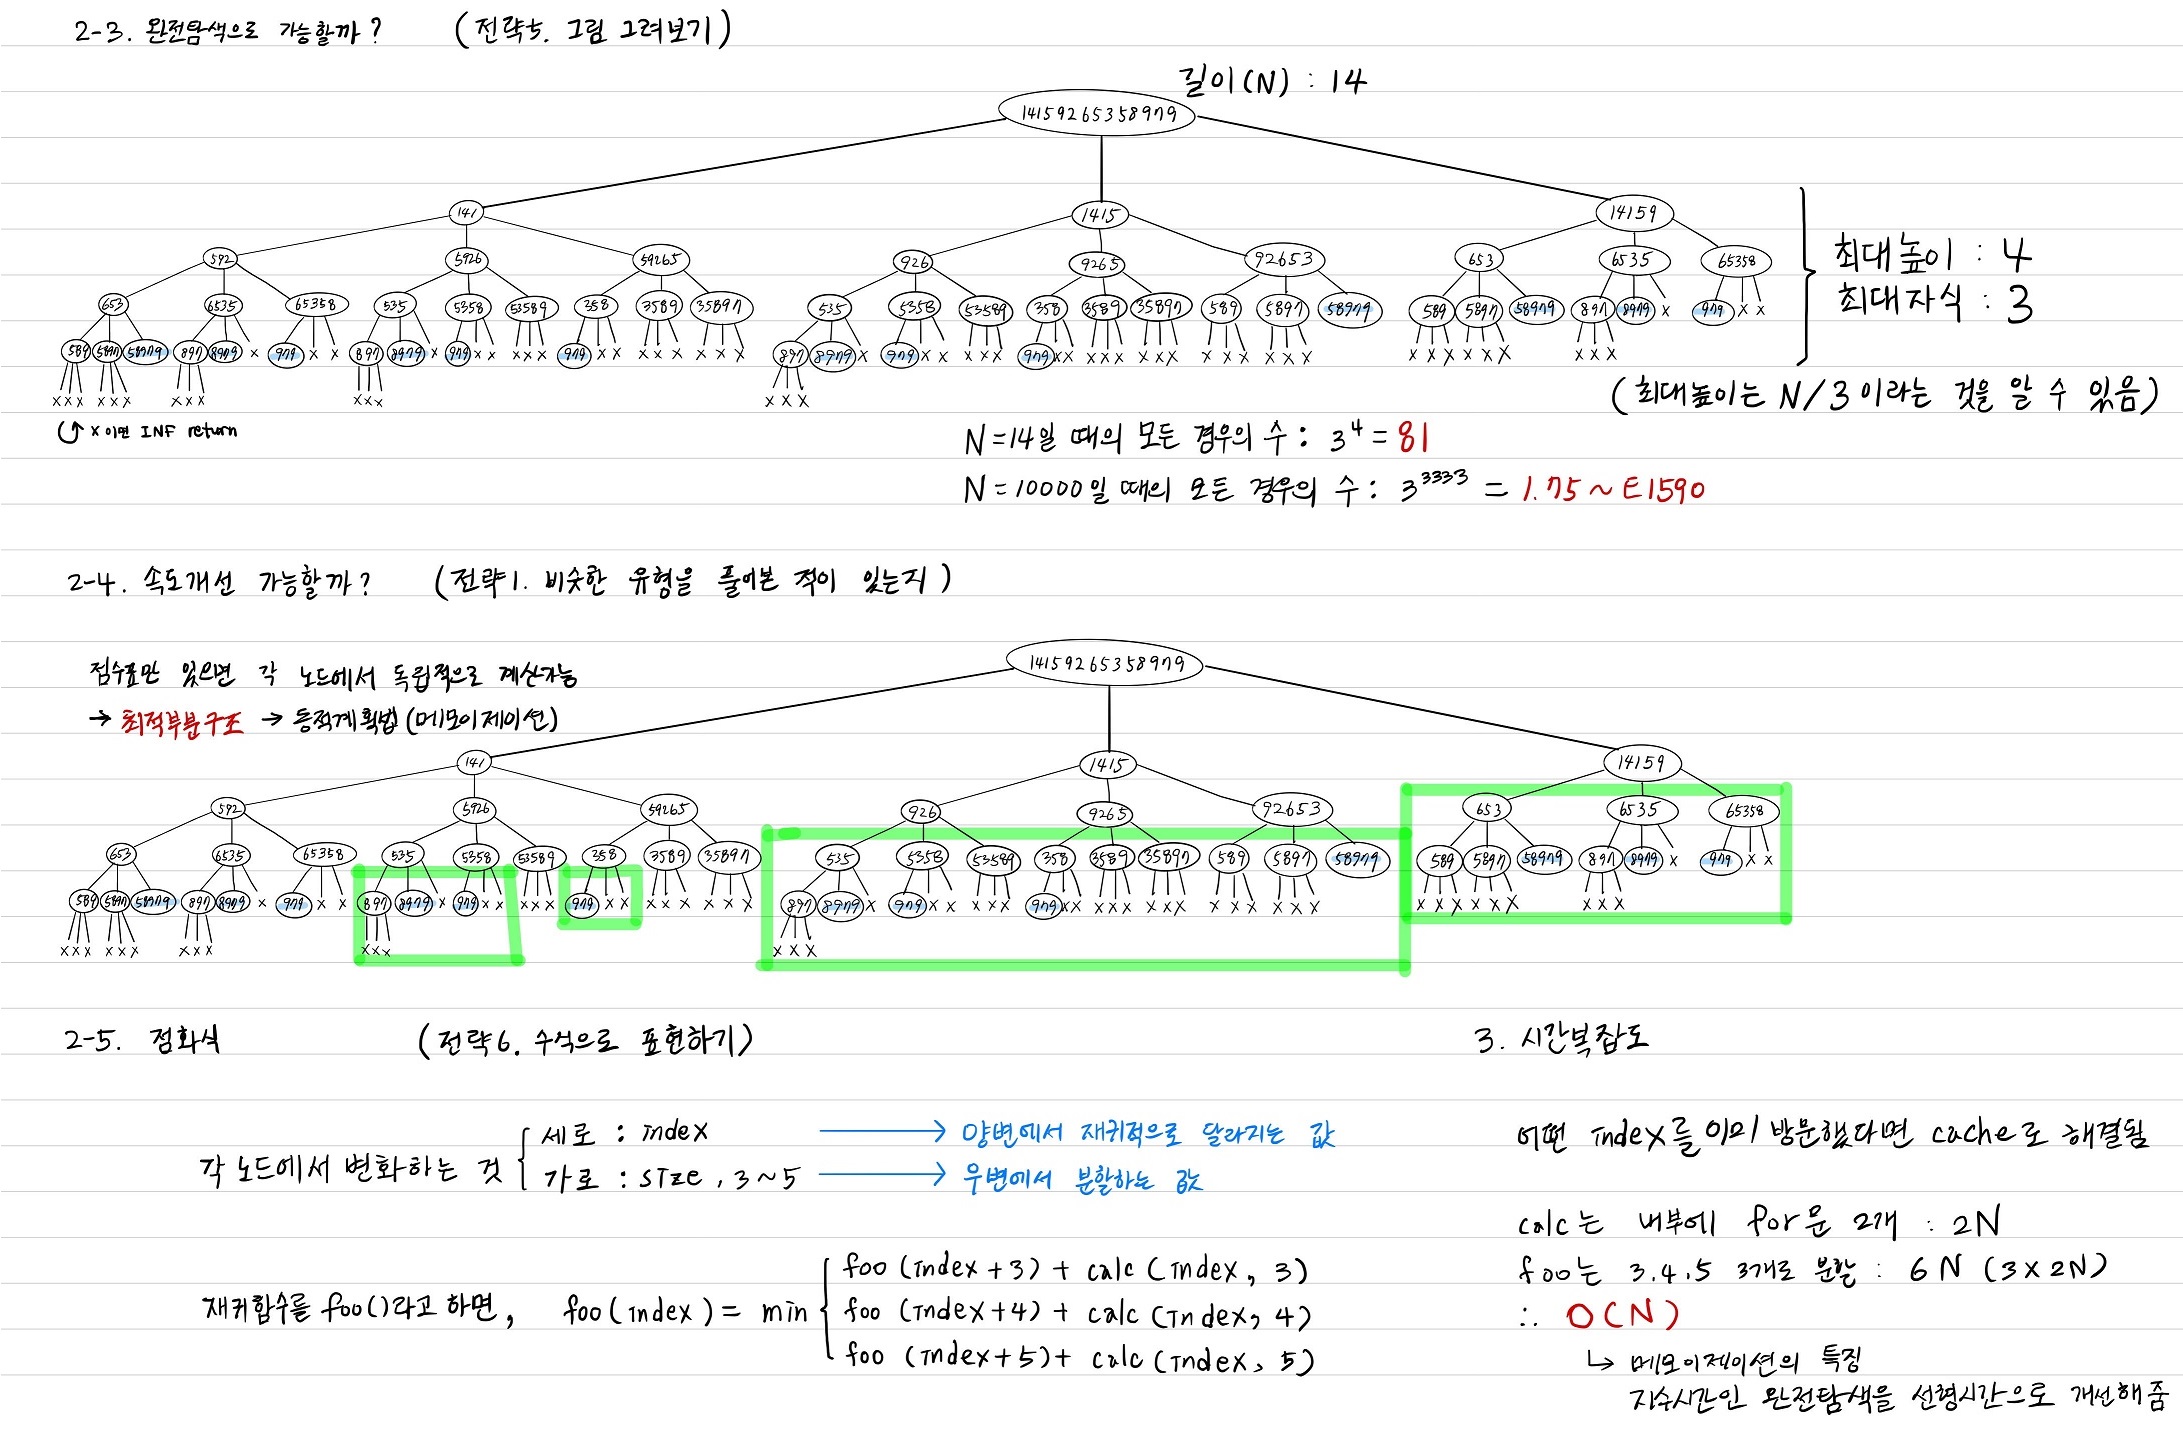 2-3. 완전탐색으로 가능할까? (전략5. 그림 그려보기)
길이(N) : 14
14159265358979
141 1415 14159
592 5926 59265 926 9265 92653 653 6535 65358
653 6535 65358 535 5358 53589 358 3589 35897 535 5358 53589 358 3589 35897 589 5897 58979 589 5897 58979 897 8979 x 979 x x
589 5897 58979 897 8979 x 979 x x 897 8979 x 979 x x x x x 979 x x x x x x x x 897 8979 x 979 x x x x x 979 x x x x x x x x x x x x x x x x x x x x x x x
x x x x x x x x x x x x x x x
최대높이 : 4
최대자식 : 3
(최대높이는 N/3 이라는 것을 알 수 있음)
x 이면 INF return
N=14일 때의 모든 경우의 수 : 3^4 = 81
N=10000일 때의 모든 경우의 수 : 3^3333 = 1.75~E1590
2-4. 속도개선 가능할까? (전략1. 비슷한 유형을 풀어본 적이 있는지)
점수표만 있으면 각 노드에서 독립적으로 계산가능
→ 최적부분구조 → 동적계획법 (메모이제이션)
14159265358979
141 1415 14159
592 5926 59265 926 9265 92653 653 6535 65358
653 6535 65358 535 5358 53589 358 3589 35897 535 5358 53589 358 3589 35897 589 5897 58979 589 5897 58979 897 8979 x 979 x x
589 5897 58979 897 8979 x 979 x x 897 8979 x 979 x x x x x 979 x x x x x x x x 897 8979 x 979 x x x x x 979 x x x x x x x x x x x x x x x x x x x x x x x
x x x x x x x x x x x x x x x
2-5. 점화식 (전략6. 수식으로 표현하기)
각 노드에서 변화하는 것
세로 : index → 양변에서 재귀적으로 달라지는 값
가로 : size, 3~5 → 우변에서 분할하는 값
재귀함수를 foo()라고 하면, foo(index) = min
foo (index+3) + calc (index, 3)
foo (index+4) + calc (index, 4)
foo (index+5) + calc (index, 5)
3. 시간복잡도
어떤 index를 이미 방문했다면 cache로 해결됨
calc는 내부에 for문 2개 : 2N
foo는 3.4.5 3개로 분할 : 6N (3x2N)
∴ O(N)
↳ 메모이제이션의 특징
지수시간인 완전탐색을 선형시간으로 개선해줌